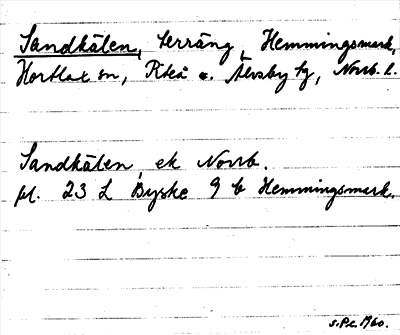 Sandkälen, terräng, Hemmingsmark,
Hortlax sn, Piteå o. Älvsby tg, Norrb. l.
Sandkälen, ek Norrb.
pl. 23 L Byske 9 b Hemmingsmark.
s.P.c. 1960.